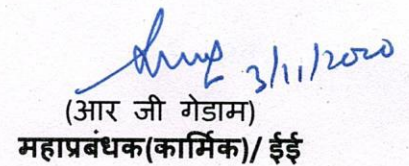 3/11/2020
(आर जी गेडाम)
महाप्रबंधक(कार्मिक)/ ईई